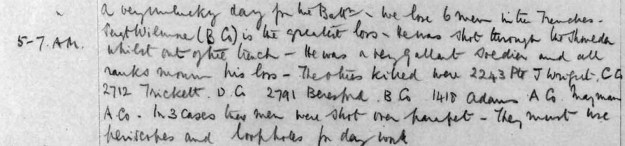 a very unlucky day for the Battn - We lose 6 men in the Trenches -
5-7. A.M. Sergt Wilmore (B Co) is the greatest loss - He was shot through the shoulder
whilst out of the trench - He was a very gallant soldier and all
ranks mourn his loss - The others killed were 2243 Pte J Wright. C Co
2712 Trickett. D. Co 2791 Beresford. B Co 1418 Adams A Co. Mayman
A Co. - In 3 cases these men were shot over parapet - They must use
periscopes and loopholes for day work